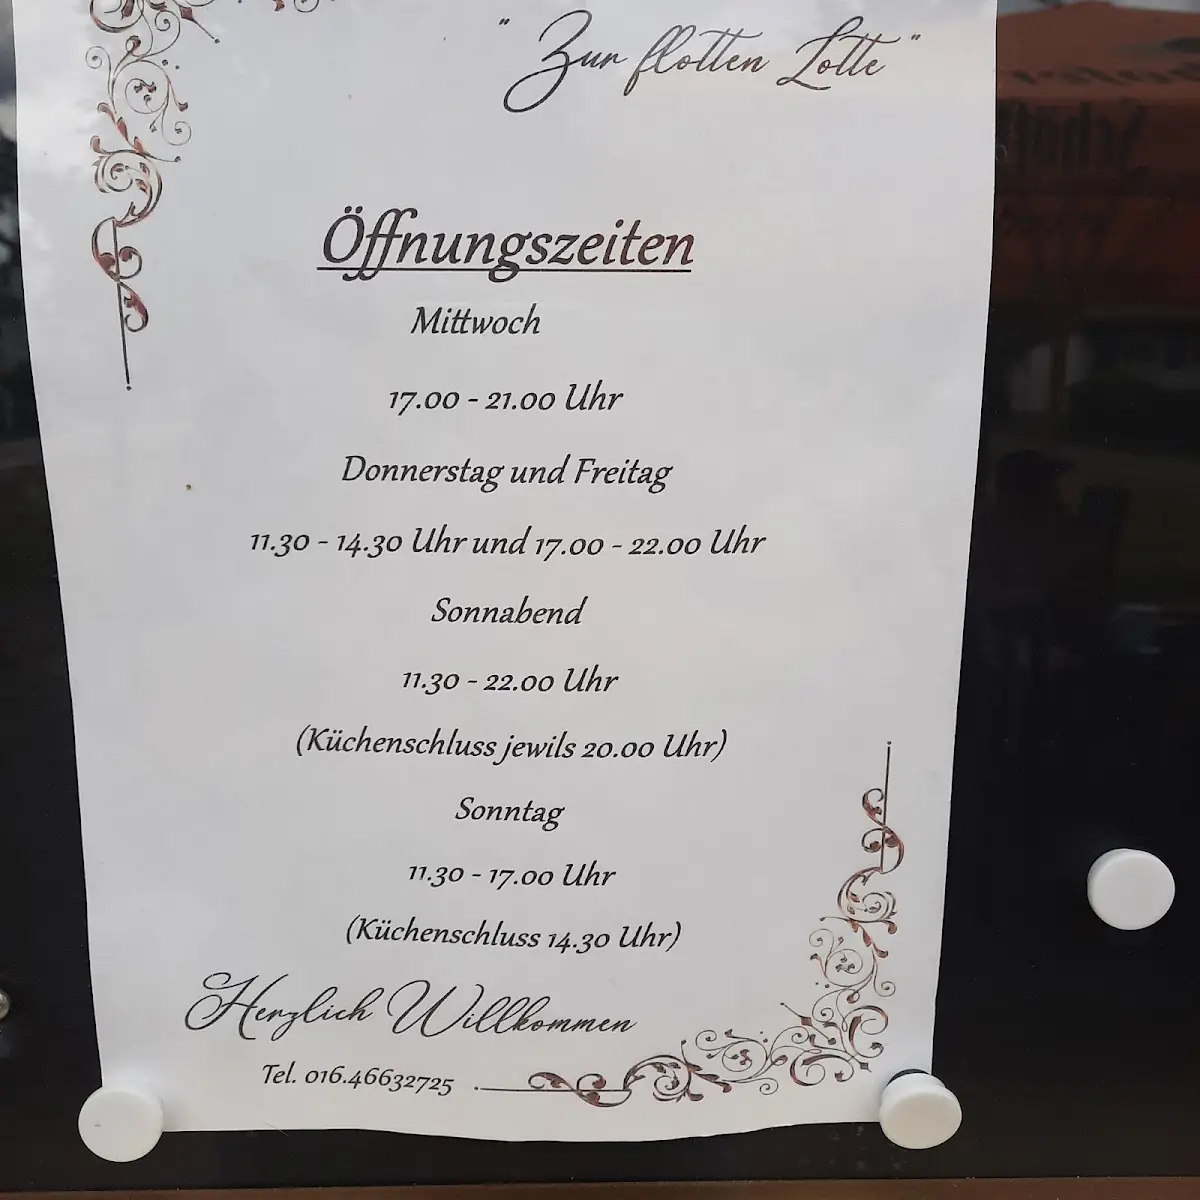 " Zur flotten Lotte "
Öffnungszeiten
Mittwoch
17.00 - 21.00 Uhr
Donnerstag und Freitag
11.30 - 14.30 Uhr und 17.00 - 22.00 Uhr
Sonnabend
11.30 - 22.00 Uhr
(Küchenschluss jewils 20.00 Uhr)
Sonntag
11.30 - 17.00 Uhr
(Küchenschluss 14.30 Uhr)
Herzlich Willkommen
Tel. 016.46632725